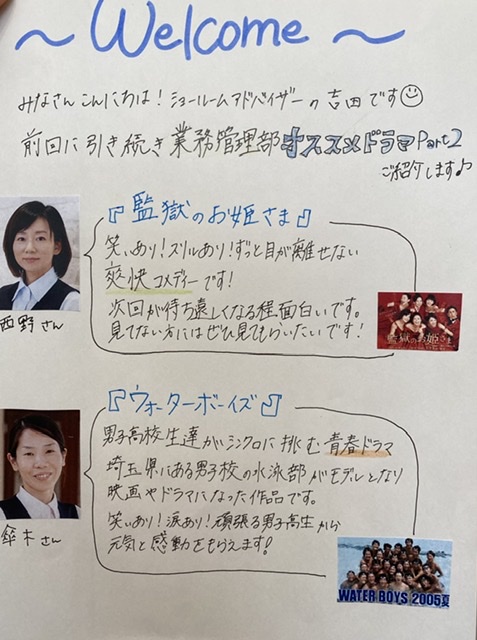 ～Welcome～
みなさんこんにちは！ショールームアドバイザーの吉田です
前回に引き続き業務管理部オススメドラマPart2
ご紹介します♪
『監獄のお姫さま』
笑いあり！スリルあり！ずっと目が離せない
爽快コメディーです！
次回が待ち遠しくなる程面白いです。
見てない方にはぜひ見てもらいたいです！
西野さん
監獄のお姫さま
『ウォーターボーイズ』
男子高校生達がシンクロに挑む青春ドラマ
埼玉県にある男子校の水泳部がモデルとなり
映画やドラマになった作品です。
笑いあり！涙あり！頑張る男子高生から
元気と感動をもらえます！
傘木さん
WATER BOYS 2005夏